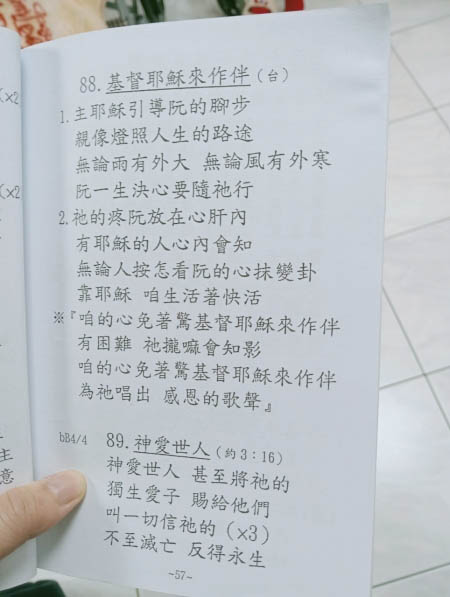 (x2
(x2
主
意
88. 基督耶穌來作伴 (台)
1. 主耶穌引導阮的腳步
親像燈照人生的路途
無論雨有外大 無論風有外寒
阮一生決心要隨祂行
2. 祂的疼阮放在心肝內
有耶穌的人心內會知
無論人按怎看阮的心抹變卦
靠耶穌 咱生活著快活
※『咱的心免著驚基督耶穌來作伴
有困難 祂攏嘛會知影
咱的心免著驚基督耶穌來作伴
為祂唱出 感恩的歌聲』
bB4/4 89. 神愛世人 (約3:16)
神愛世人 甚至將祂的
獨生愛子 賜給他們
叫一切信祂的 (x3)
不至滅亡 反得永生
~57~